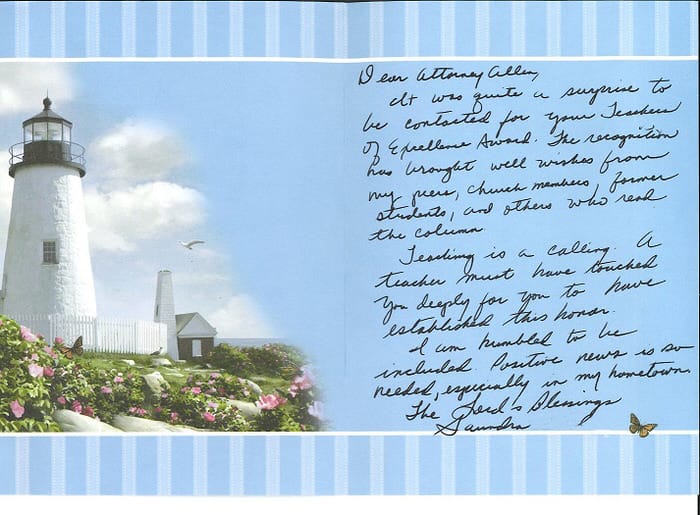 Dear Attorney Allen,
It was quite a surprise to
be contacted for your Teachers
of Excellence Award. The recognition
has brought well wishes from
my peers, church members, former
students, and others who read
the column.
Teaching is a calling. A
teacher must have touched
you deeply for you to have
established this honor.
I am humbled to be
included. Positive news is so
needed, especially in my hometown.
The Lord's Blessings
Saundra